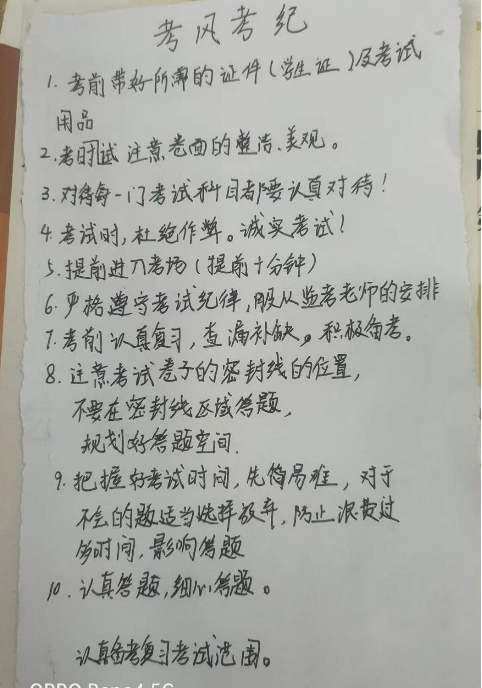 考风考纪
1. 考前带好所需的证件(学生证)及考试
用品
2. 考时试 注意卷面的整洁、美观。
3. 对待每一门考试科目都要认真对待!
4. 考试时,杜绝作弊。诚实考试!
5. 提前进入考场(提前十分钟)
6. 严格遵守考试纪律,服从监考老师的安排
7. 考前认真复习,查漏补缺。积极备考。
8. 注意考试卷子的密封线的位置,
不要在密封线区域答题,
规划好答题空间.
9. 把握好考试时间,先简易难,对于
不会的题适当选择放弃,防止浪费过
多时间,影响答题
10. 认真答题,细心答题。
认真备考复习考试范围。